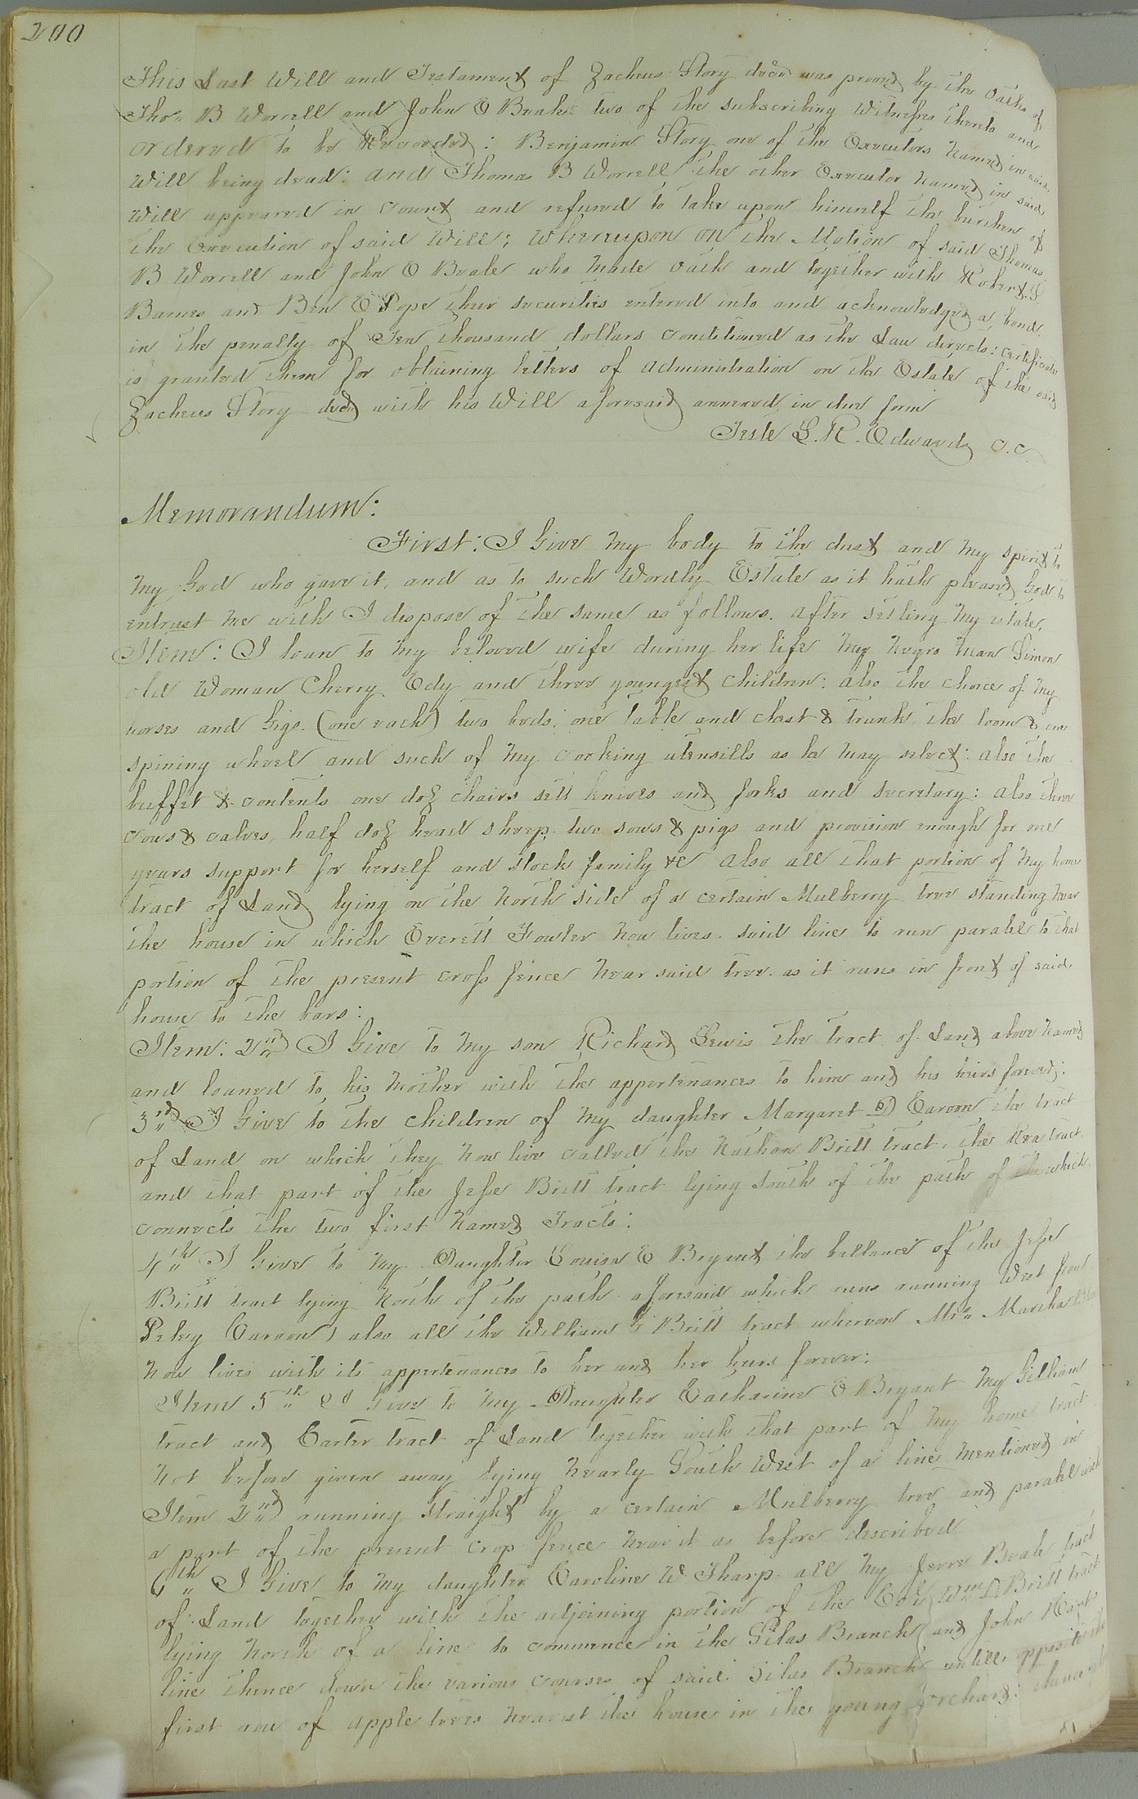 200
This Last Will and Testament of Zacheus Story decd was proved by the Oaths of
Thos B Worrell and John E Beale two of the subscribing Witnesses thereto and
ordered to be Recorded: Benjamin Story one of the Executors Named in said
Will being dead: and Thomas B Worrell the other Executor Named in said
Will appeared in Court and refused to take upon himself the burthen of
the Execution of said Will; Whereupon on the Motion of said Thomas
B Worrell and John E Beale who Made Oath and together with Robert S
Barnes and Ben E Pope their securities entered into and acknowledged a bond
in the penalty of Ten thousand dollars Conditioned as the Law directs: Certificate
is granted them for obtaining letters of Administration on the Estate of the said
Zacheus Story decd with his Will aforesaid annexed in due form
Teste L. R. Edwards C.C.
Memorandum:
First: I Give My body to the dust and My spirit to
My God who gave it, and as to such Wordly Estate as it hath pleased God to
entrust Me with I dispose of the same as follows. after setling My estate,
Item: I loan to My beloved wife during her life My Negro Man Simon
old Woman Cherry Edy and three youngest Children: Also the choice of My
horses and Gigs (one each) two beds, one table and chest & trunk the loom & one
spining wheel and such of My cooking utensills as he may select: also the
buffet & contents one doz chairs sett knives and forks and secretary: also three
cows & calves, half doz head sheep two sows & pigs and provision enough for one
years support for herself and stock family &c Also all that portion of My home
tract of Land lying on the North side of a certain Mulberry tree standing Near
the house in which Everett Fowler Now lives. said line to run paralel to that
portion of the present cross fence Near said tree as it runs in front of said
house to the bars:
Item: 2nd I Give to My son Richard Lewis the tract of Land above Named
and loaned to his Mother with the appertenances to him and his heirs forever:
3rd I Give to the children of My daughter Margaret D Caroon the tract
of Land on which they Now live called the Nathan Britt tract, the tract
and that part of the Jesse Britt tract lying South of the path of which
connects the two first Named Tracts:
4th I Give to My Daughter Louisa E Bryant the ballance of the Jesse
Britt tract lying North of the path aforesaid which runs running West from
Caroons also all the William G Britt tract whereon Mrs Martha
Now lives with its appertenances to her and her heirs forever:
Item 5th I Give to My Daughter Catharine E Bryant My Gilliam
tract and Carter tract of Land together with that part of My home tract
Not before given away lying Nearly South West of a line Mentioned in
Item 2nd running Straight by a certain Mulberry tree and paralel with
a part of the present crop fence Near it as before described
6th I Give to My daughter Caroline W Tharp all My Beale tract
of Land together with the adjoining portion of the Wm D Britt tract
lying North of a line to commence in the Silas Branch and John Hart
line thence down the various courses of said Silas Branch untill opposite the
first row of apple trees Nearest the house in the young orchard: thence